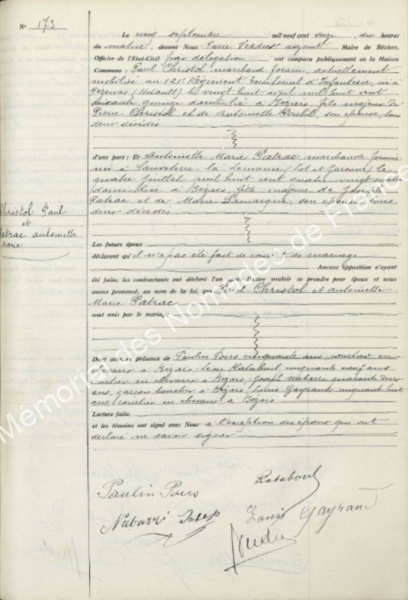 N° 173
Christol Paul
et
Patrac antoinette
marie
Le onze septembre mil neuf cent onze, dix heures
du matin, devant Nous Pierre Verdier adjoint Maire de Béziers,
Officier de l'Etat-Civil par délégation ont comparu publiquement en la Maison
Commune : Paul Christol marchand forain, actuellement
mobilisé au 121e Régiment territorial d'Infanterie, né à
Pézenas (Hérault) le vingt huit avril mil huit cent
soixante quinze domicilié à Béziers fils majeur de
Pierre Christol et de Antoinette son épouse, tous
deux décédés
d'une part ; Et Antoinette Marie Patrac marchande foraine
née à Sauveterre la Lemance (Lot et Garonne) le
quatre juillet mil huit cent quatre vingt
domiciliée à Béziers fille majeure de
Patrac et de Marie son épouse tous
deux décédés
Les futurs époux
déclarent qu'il n'a pas été fait de contrat de mariage
Aucune opposition n'ayant
été faite, les contractants ont déclaré l'un après l'autre vouloir se prendre pour époux et nous
avons prononcé, au nom de la loi, que Paul Christol et Antoinette
Marie Patrac
sont unis par le mariage
Dont acte en présence de Paulin Pons cinquante ans, courtier en
chevaux à Béziers, Léon Rataboul cinquante neuf ans
courtier en chevaux à Béziers, Joseph quarante
ans, garçon boucher à Béziers, Louis Gayraud cinquante huit
ans, courtier en chevaux à Béziers
Lecture faite,
et les témoins ont signé avec Nous à l'exception des époux qui ont
déclaré ne savoir signer
Paulin Pons Rataboul
Joseph Louis Gayraud
Verdier
Mémorial des Nomades de France